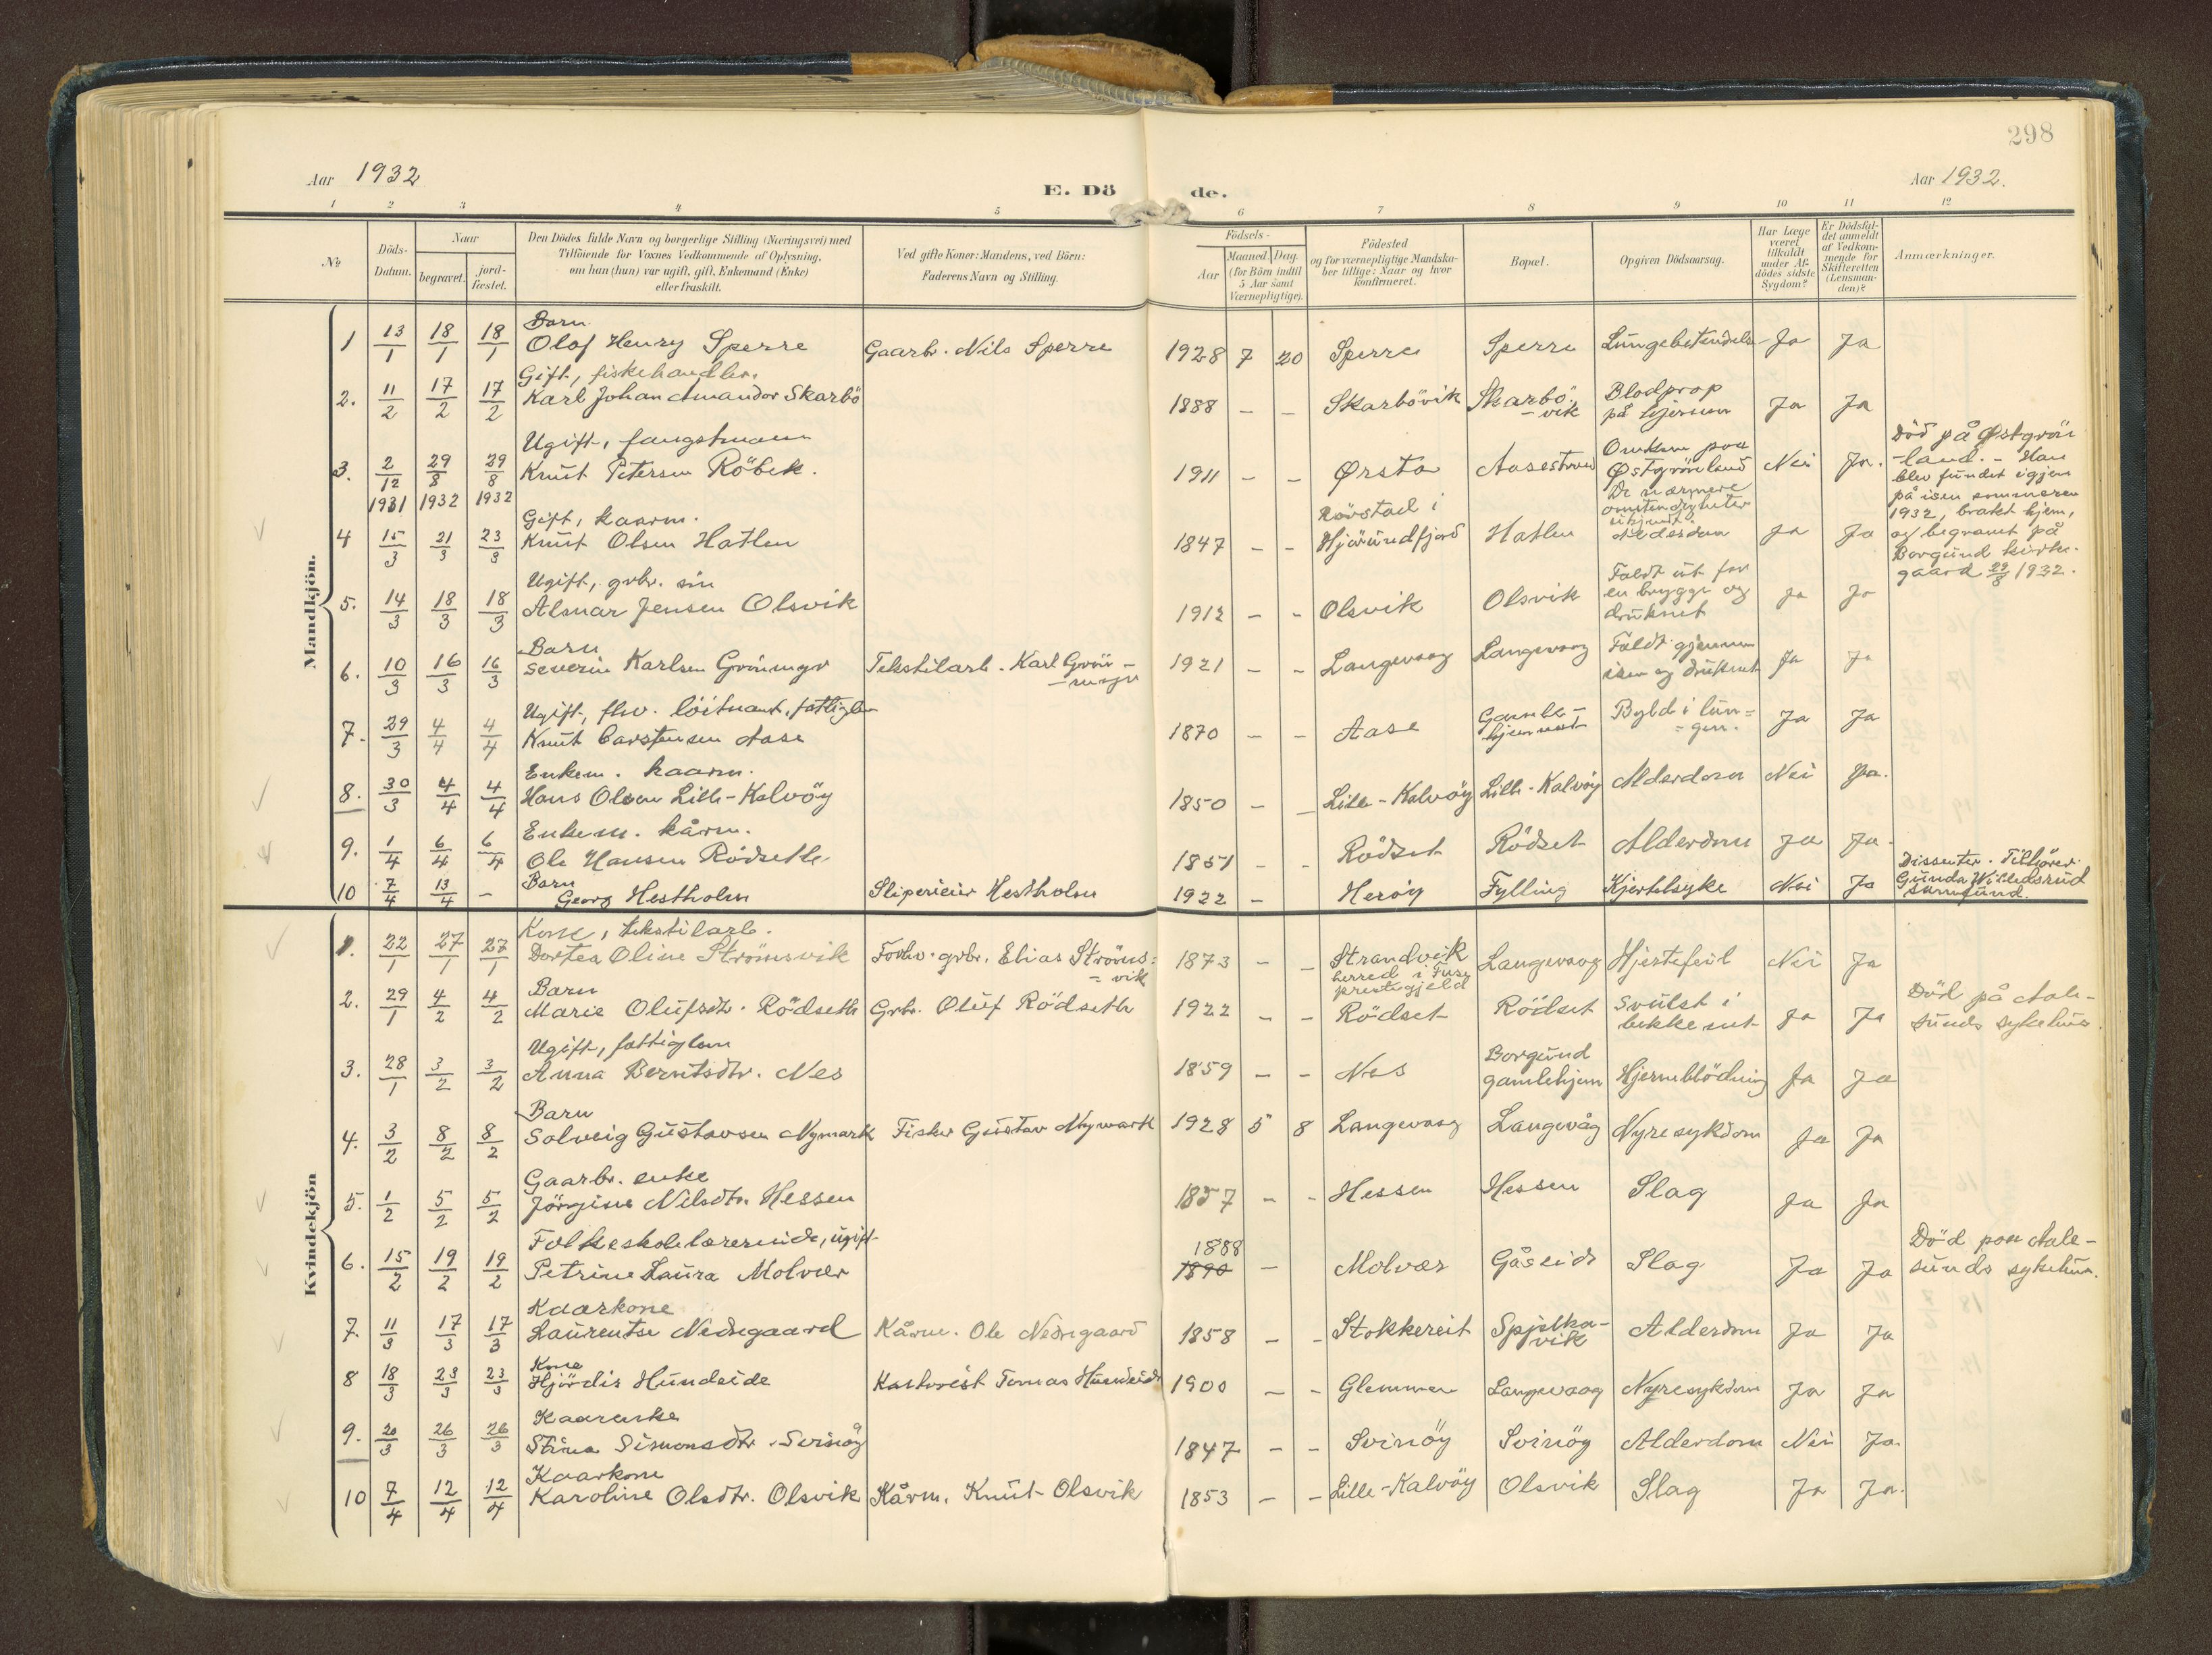 298
Aar 1932
E. Dö de.
Aar 1932.
1 2 3 4 5 6 7 8 9 10 11 12
№
Döds-Datum.
Naar
begravet.
jord-fæstet.
Den Dödes fulde Navn og borgerlige Stilling (Næringsvei) med
Tilföiende for Voxnes Vedkommende af Oplysning,
om han (hun) var ugift, gift, Enkemand (Enke)
eller fraskilt.
Ved gifte Koner: Mandens, ved Börn:
Faderens Navn og Stilling.
Födsels-
Aar
Maaned. Dag.
(for Börn indtil
5 Aar samt
Værnepligtige).
Födested
og for værnepligtige Mandska-
ber tillige: Naar og hvor
konfirmeret.
Bopæl.
Opgiven Dödsaarsag.
Har Læge
været
tilkaldt
under Af-
dödes sidste
Sygdom?
Er Dödsfal-
det anmeldt
af Vedkom-
mende for
Skifteretten
(Lensman-
den)?
Anmærkninger.
Mandkjön.
Barn
1 13/1 18/1 18/1 Olaf Henry Sperre Gaarbr. Nils Sperre 1928 7 20 Sperre Sperre Lungebetendelse Ja Ja
Gift, fiskehandler.
2. 11/2 17/2 17/2 Karl Johan Amandor Skarbö 1888 – – Skarbövik Skarbö-
-vik Blodprop
på hjernen Ja Ja
Ugift, fangstmann
3. 2/12 29/8 29/8 Knut Petersen Röbek. 1911 – – Ørsta Aasestrand Omkom paa
Østgrönland Nei Ja.
1931 1932 1932
De nærmere
omstendigheter
ukjent.
Död på Østgrön
-land. - Han
blev fundet igjen
på isen sommeren
1932, brakt hjem,
og begravet på
Borgund kirke-
gaard 29/8 1932.
Gift, kaarm.
4 15/3 21/3 23/3 Knut Olsen Hatlen 1847 – – Rörstad i
Hjörundfjord Hatlen Alderdom Ja Ja
Ugift, grbr. sön
5. 14/3 18/3 18/3 Almar Jensen Olsvik 1912 – – Olsvik Olsvik Faldt ut for
en brygge og
druknet Ja Ja
Barn
6. 10/3 16/3 16/3 Severin Karlsen Gröningr Tekstilarb. Karl Grön-
1921 – – Langevaag Langevaag Faldt gjennem
isen og druknet Ja Ja
Ugift, fhv. löitnant, fattiglem
7. 29/3 4/4 4/4 Knut Carstensen Aase 1870 – – Aase Gamle-
hjemmet Byld i lun-
-gen. Ja Ja
Enkem. kaarm.
8. 30/3 4/4 4/4 Hans Olsen Lille-Kalvöy 1850 – – Lille-Kalvöy Lille-Kalvöy Alderdom Nei Ja.
Enkem. kårm.
9. 1/4 6/4 6/4 Ole Hansen Rödseth 1851 – – Rödset Rödset Alderdom Ja Ja.
Barn
10 7/4 13/4 – Georg Hestholm Sliperieier Hestholm 1922 – Heröy Fylling Kjertelsyke Nei Ja
Dissenter. Tilhörer
samfund.
Kvindekjön
Kone, tekstilarb.
1. 22/1 27/1 27/1 Dortea Oline Strömsvik Forhv. grbr. Elias Ströms-
-vik 1873 – – Strandvik
herred i Fuse
prestegjeld Langevaag Hjertefeil Nei Ja
Barn
2. 29/1 4/2 4/2 Marie Olufsdtr. Rödseth Grbr. Oluf Rödseth 1922 – – Rödset Rödset Svulst i
bekkenet Ja Ja Död på Aale-
sunds sykehus.
Ugift, fattiglem
3. 28/1 3/2 3/2 Anna Berntsdtr. Nes 1859 – – Nes Borgund
gamlehjem Hjerneblödning Ja Ja
Barn
4. 3/2 8/2 8/2 Solveig Gustavsen Nymark Fisker Gustav Nymark 1928 5 8 Langevaag Langevåg Nyresykdom Ja Ja
Gaarbr. enke
5. 1/2 5/2 5/2 Jörgine Nilsdtr. Hessen 1857 – – Hessen Hessen Slag Ja Ja
Folkeskolelærerinde, ugift
6. 15/2 19/2 19/2 Petrine Laura Molvær 1888
1890 – Molvær Gåseide Slag Ja Ja Död paa Aale-
sunds sykehus.
Kaarkone
7. 11/3 17/3 17/3 Laurentse Nedregaard Kårm. Ole Nedregaard 1858 – – Stokkereit Spjelka-
vik Alderdom Ja Ja
Kone
8 18/3 23/3 23/3 Hjördis Hundeide Tomas Hundeide 1900 – – Glemmen Langevaag Nyresykdom Ja Ja
Kaarenke
9. 20/3 26/3 26/3 Stina Simonsdtr. Svinöy 1847 – – Svinöy Svinöy Alderdom Nei Ja
Kaarkone
10 7/4 12/4 12/4 Karoline Olsdtr. Olsvik Kårm. Knut Olsvik 1853 – – Lille-Kalvöy Olsvik Slag Ja Ja.